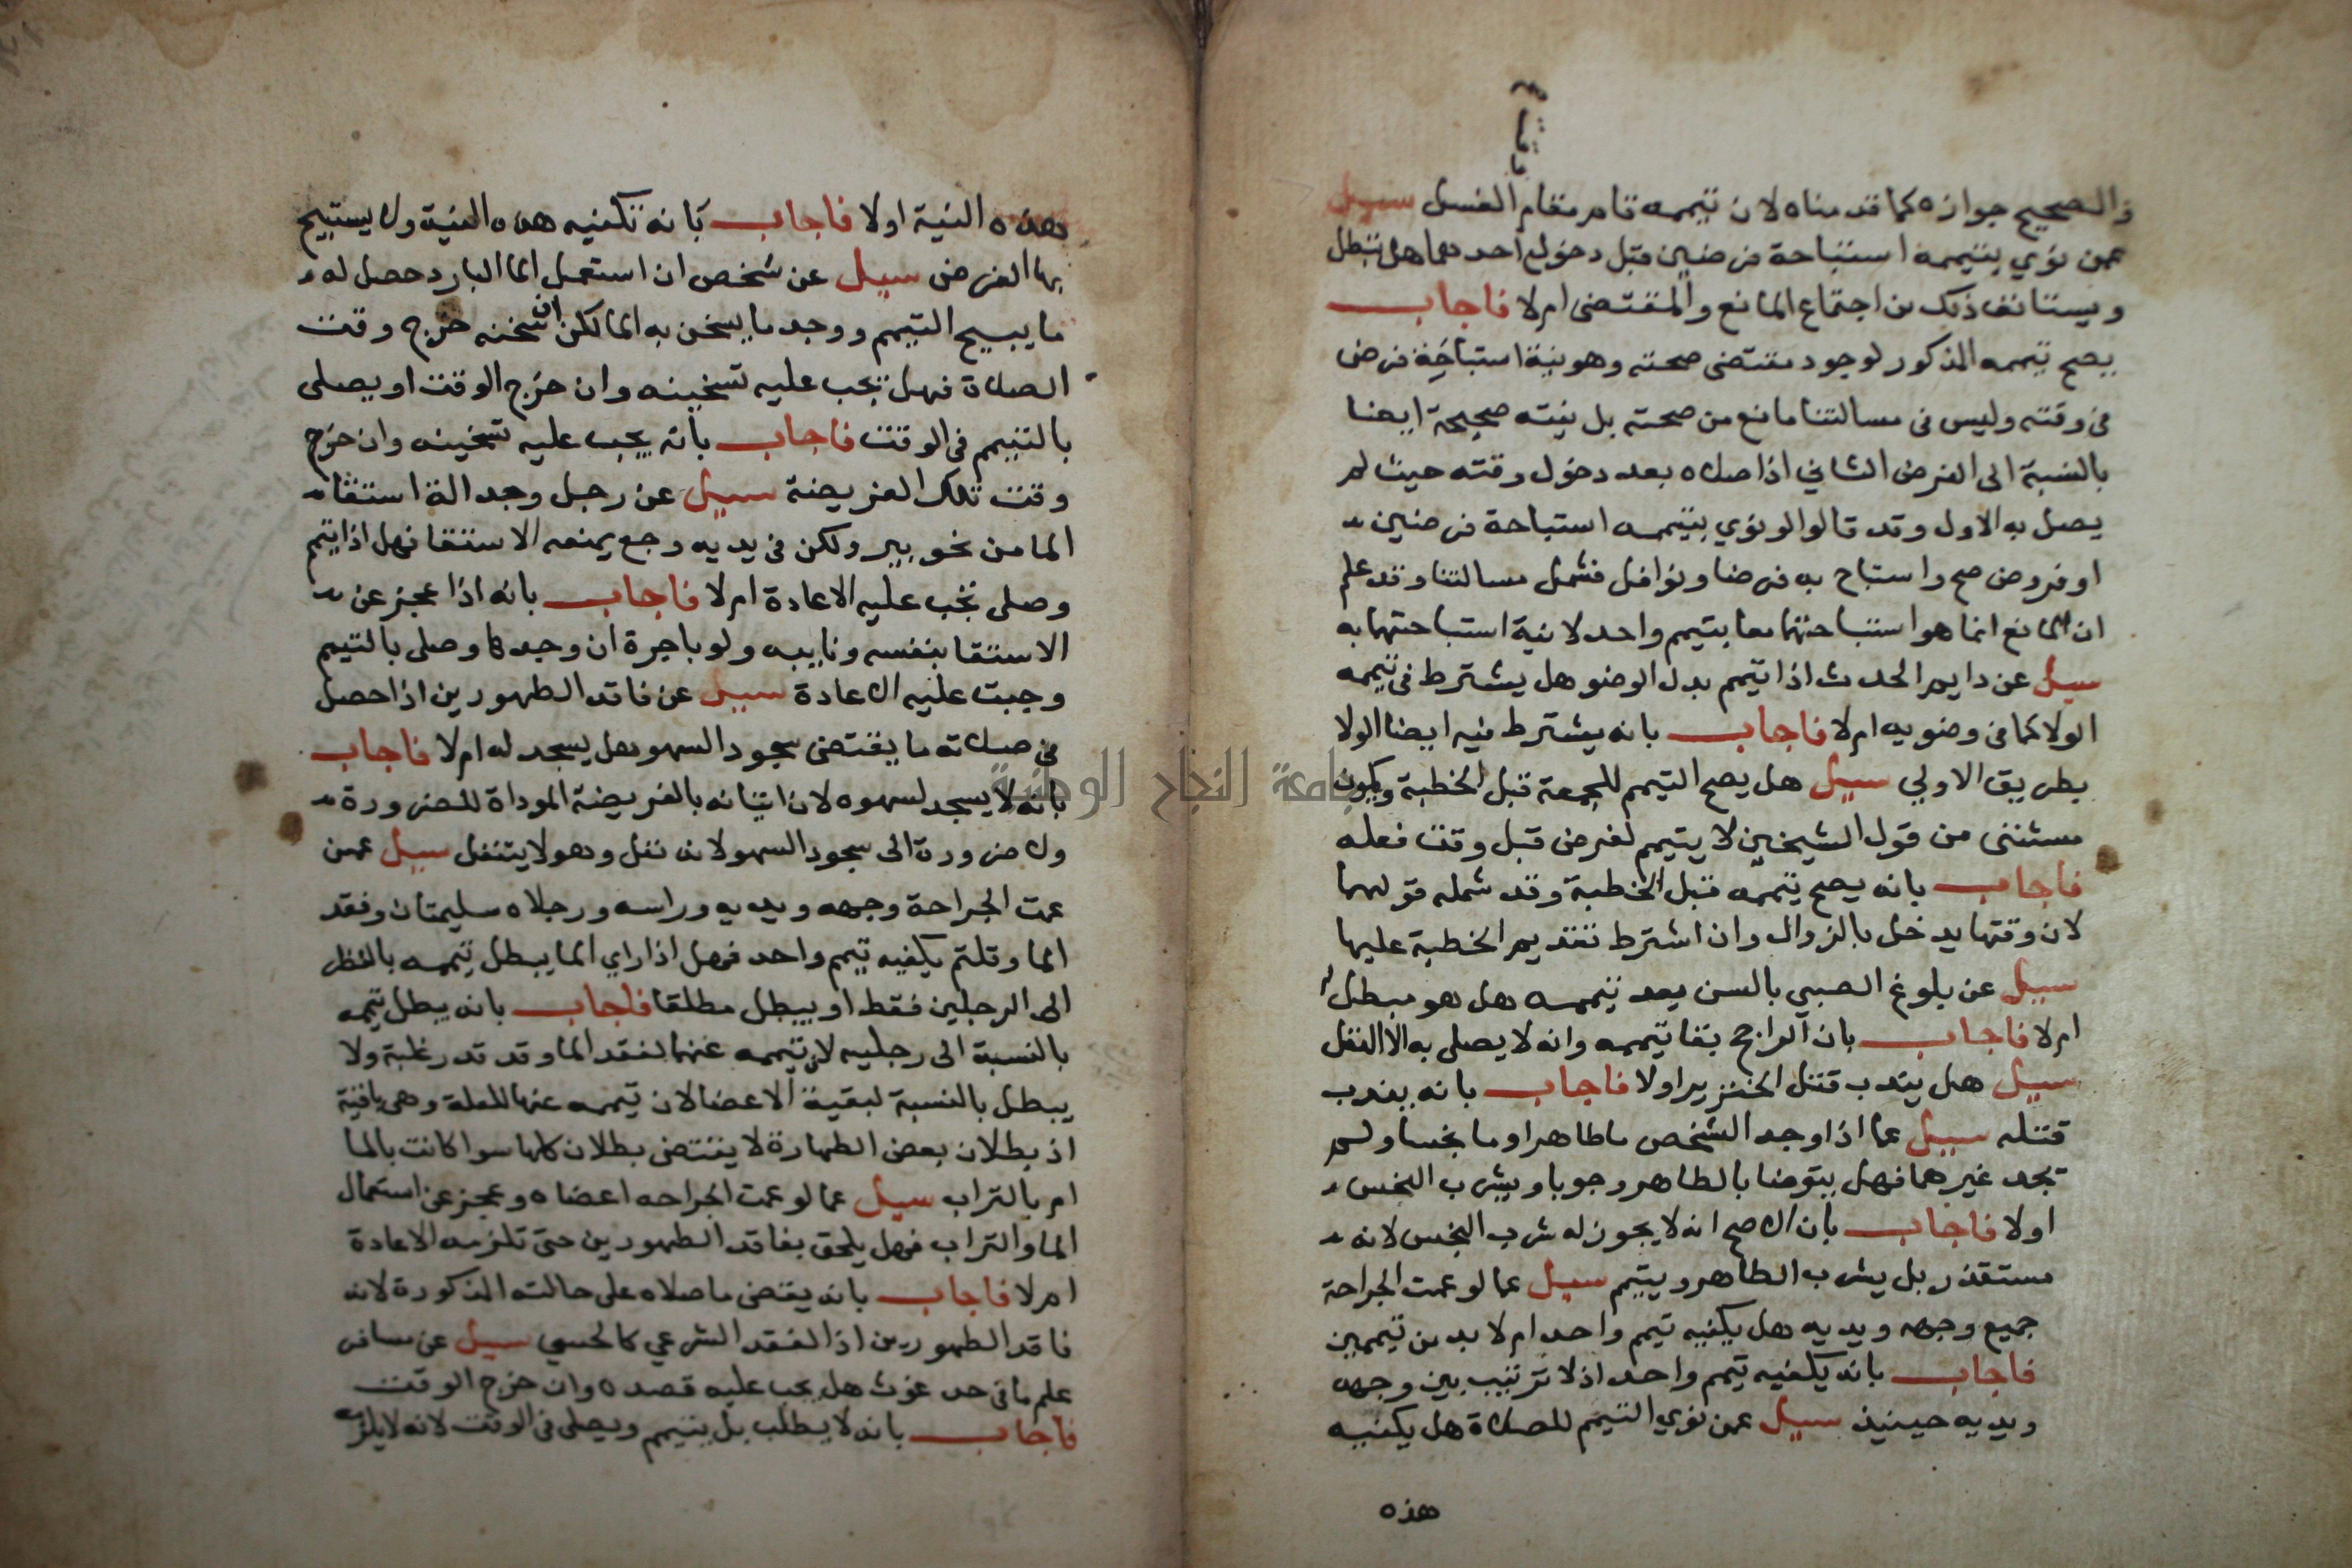 وقتـ ع
فالصحيح جوازه كما قدمناه لان تيممه قام مقام الغسل سيل
عمن نوي بتيممه استباحة فرضين قبل دخول احدهما هل تبطل
ويستانف ذلك من اجتماع المانع والمقتضى ام لا فاجاب
يصح تيممه المذكور لوجود مقتضى صحته وهو نية استباحة فرض
فى وقته وليس فى مسالتنا مانع من صحته بل نيته صحيحة ايضا
بالنسبة الى الفرض الثاني اذا صلاه بعد دخول وقته حيث لم
يصل به الاول وقد قالوا لو نوي بتيممه استباحة فرضين
او فروض صح واستباح به فرضا ونوافل فشمل مسالتنا وقد علم
ان المانع انما هو استباحتهما معا بتيمم واحد لا نية استباحتهما به
سيل عن دايم الحدث اذا تيمم بدل الوضو هل يشترط فى تيممه
الولا كما فى وضويه ام لا فاجاب بانه يشترط فيه ايضا الولا
بطريق الاولي سيل هل يصح التيمم للجمعة قبل الخطبة ويكون
مستثنى من قول الشيخين لا يتيمم لفرض قبل وقت فعله
فاجاب بانه يصح تيممه قبل الخطبة وقد شمله قولهما
لان وقتها يدخل بالزوال وان اشترط تقديم الخطبة عليها
سيل عن بلوغ الصبي بالسن بعد تيممه هل هو مبطل
ام لا فاجاب بان الراجح بقا تيممه وانه لا يصلى به الا النفل
سيل هل يندب قتل الخنزير او لا فاجاب بانه يندب
قتله سيل عما اذا وجد الشخص ما طاهرا وما نجسا ولم
يجد غيرهما فهل يتوضا بالطاهر وجوبا ويشرب النجس
او لا فاجاب بان الاصح انه لا يجوز له شرب النجس لانه
مستقذر بل يشرب الطاهر ويتيمم سيل عما لو عمت الجراحة
جميع وجهه ويديه هل يكفيه تيمم واحد ام لا بد من تيممين
فاجاب بانه يكفيه تيمم واحد اذ لا ترتيب بين وجهه
ويديه حينيذ سيل عمن نوي التيمم للصلاة هل يكفيه
هذه
هذه النية او لا فاجاب بانه تكفيه هذه النية ولا يستبيح
بها الفرض سيل عن شخص ان استعمل الما البارد حصل له
ما يبيح التيمم ووجد ما يسخن به الما لكن ان سخنه خرج وقت
الصلاة فهل يجب عليه تسخينه وان خرج الوقت او يصلى
بالتيمم فى الوقت فاجاب بانه يجب عليه تسخينه وان خرج
وقت تلك الفريضة سيل عن رجل وجد الة استقا
الما من نحو بير ولكن فى يديه وجع يمنعه الاستقا فهل اذا تيمم
وصلى تجب عليه الاعادة ام لا فاجاب بانه اذا عجز عن
الاستقا بنفسه ونايبه ولو باجرة ان وجدها وصلى بالتيمم
وجبت عليه الاعادة سيل عن فاقد الطهورين اذا حصل
فى صلاته ما يقتضى سجود السهو هل يسجد له ام لا فاجاب
بانه لا يسجد لسهوه لان اتيانه بالفريضة الموداة للضرورة
ولا ضرورة الى سجود السهو لانه نفل وهو لا يتنفل سيل عمن
عمت الجراحة وجهه ويديه وراسه ورجلاه سليمتان وفقد
الما وقلتم يكفيه تيمم واحد فهل اذا راي الما يبطل تيممه بالنظر
الى الرجلين فقط او يبطل مطلقا فاجاب بانه يبطل تيممه
بالنسبة الى رجليه لان تيممه عنهما لفقد الما وقد قدر عليه ولا
يبطل بالنسبة لبقية الاعضا لان تيممه عنها للعلة وهى باقية
اذ بطلان بعض الطهارة لا يقتضى بطلان كلها سوا كانت بالما
ام بالتراب سيل عما لو عمت الجراحه اعضاه وعجز عن استعمال
الما والتراب فهل يلحق بفاقد الطهورين حتى تلزمه الاعادة
ام لا فاجاب بانه يقضى ما صلاه على حالته المذكورة لانه
فاقد الطهورين اذ الفقد الشرعي كالحسي سيل عن مسافر
علم ما فى حد غوث هل يجب عليه قصده وان خرج الوقت
فاجاب بانه لا يطلب بل يتيمم ويصلى فى الوقت لانه لا يلزمه
جامعة النجاح الوطنية